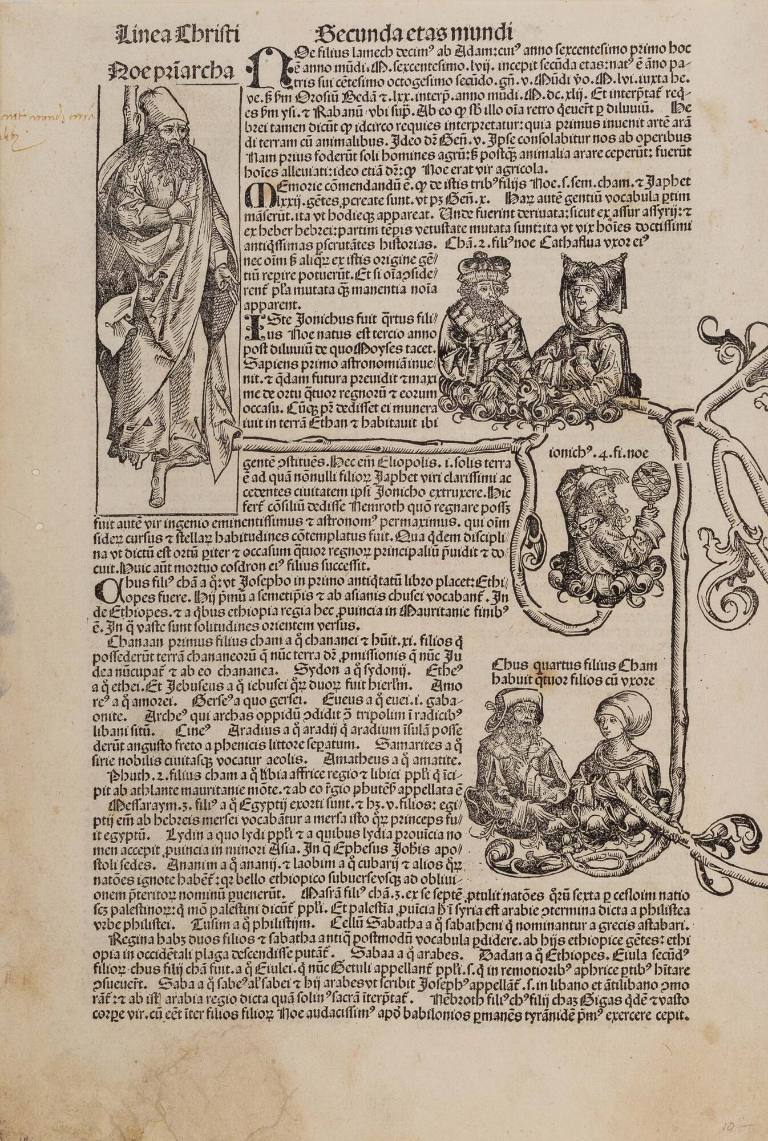 Linea Christi
Secunda etas mundi
Noe pr̄iarcha
NOe filius lamech decimꝰ ab Adam: cuiꝰ anno sexcentesimo primo hoc
ē anno mūdi. M. sexcentesimo. lvij. incepit secūda etas: natꝰ ē āno pa-
tris sui cētesimo octogesimo secūdo. gn̄. v. Mūdi v̄o. M. lvi. iuxta he.
ve. ꝫ ẜm Orosiū Bedā ⁊ .lxx. interp̄. anno mūdi. M. dc. xlij. Et interp̄tat req̄-
es ẜm ysi. ⁊ Rabanū vbi sup̄. Ab eo ꝙ sb̄ illo oīa retro q̄euerūt ꝑ diluuiū. He
brei tamen dicūt ꝙ idcirco requies interpretatur: quia primus inuenit artē arā
di terram cū animalibus. Ideo dr̄ Gen̄. v. Ipse consolabitur nos ab operibus
Nam prius foderūt soli homines agrū: ꝫ postꝙ̄ animalia arare ceperūt: fuerūt
hoīes alleuiati: ideo etiā dr̄: ꝙ Noe erat vir agricola.
MEmorie cōmendandū ē. ꝙ de istis tribꝰ filijs Noe. s. sem. cham. ⁊ Japhet
lxxij. gētes, pcreate sunt. vt pꝫ Gen̄. x. Haꝝ autē gentiū vocabula ꝑtim
māserūt. ita vt hodieꝗ appareat. Unde fuerint deriuata: sicut ex assur assyrij: ⁊
ex heber hebrei: partim tēpis vetustate mutata sunt: ita vt vix hoīes doctissimi
antiq̄ssimas ꝑscrutātes historias.
Chā. 2. filꝰ noe Cathaflua vxor eiꝰ
nec oīm ꝫ aliq̄ꝝ ex istis origine gē-
tiū repire potuerūt. Et si oīa ꝯside-
rent̄ pl̄a mutata ꝙ̄ manentia noīa
apparent.
ISte Jonichus fuit q̄rtus fili-
us Noe natus est tercio anno
post diluuiū de quo Moyses tacet.
Sapiens primo astronomiā inue-
nit. ⁊ q̄dam futura preuidit ⁊ maxi
me de ortu q̄tuor regnorū ⁊ eorum
occasu. Cūꝗ pr̄ dedisset ei munera
iuit in terrā Ethan ⁊ habitauit ibi
gentē ꝯstituēs. Hec em̄ Eliopolis. i. solis terra
ē ad quā nōnulli filioꝝ Japhet viri clarissimi ac
cedentes ciuitatem ipsi Jonicho extruxere. Hic
fert̄ cōsiliū dedisse Nemroth quō regnare possꝫ
ionichꝰ. 4. fi. noe
fuit autē vir ingenio eminentissimus ⁊ astronomꝰ permaximus. qui oīm
sideꝝ cursus ⁊ stellaꝝ habitudines cōtemplatus fuit. Qua q̄dem discipli-
na vt dictū est ortū ꝑiter ⁊ occasum q̄tuor regnoꝝ principaliū p̄uidit ⁊ do
cuit. Huic aūt mortuo cosdron eiꝰ filius successit.
Chus filiꝰ chā a q̄: vt Josepho in primo antiq̄tatū libro placet: Ethi-
opes fuere. Hij p̄mu a semetipis ⁊ ab asianis chusei vocabant̄. In
de Ethiopes. ⁊ a q̄bus ethiopia regia hec ꝓuincia in Mauritanie finibꝰ
ē. In q̄ vaste sunt solitudines orientem versus.
Chus quartus filius Cham
habuit q̄tuor filios cū vxore
Chanaan primus filius cham a q̄ chananei ⁊ hūit. xi. filios q̄
possederūt terrā chananeorū q̄ nūc terra dr̄ ꝓmissionis q̄ nūc Ju
dea nūcupat̄ ⁊ ab eo chananea. Sydon a q̄ sydonij. Etheꝰ
a q̄ ethei. Et Jebuseus a q̄ iebusei q̄ꝝ duoꝝ fuit hierl̄m. Amo
reꝰ a q̄ amorei. Gerseꝰ a quo gersei. Eueus a q̄ euei. i. gaba-
onite. Archeꝰ qui archas oppidū ꝯdidit ꝯ̄ tripolim ī radicibꝰ
libani sitū. Cineꝰ Aradius a q̄ aradij q̄ aradium īsulā posse
derūt angusto freto a phenicis littore seꝑatum. Samarites a q̄
sirie nobilis ciuitasꝗ vocatur aeolis. Amatheus a q̄ amatite.
Phuth. 2. filius cham a q̄ libia affrice regio ⁊ libici ppl̄i q̄ īci-
pit ab athlante mauritanie mōte. ⁊ ab eo r̄gio phutēꝭ appellata ē
Messaraym. 3. filiꝰ a q̄ Egyptij exorti sunt. ⁊ hꝫ. v. filios: egi-
ptij em̄ ab hebreis mersei vocabātur a mersa isto q̄ princeps fu-
it egyptū. Lydin a quo lydi ppl̄i ⁊ a quibus lydia prouīcia no
men accepit ꝓuincia in minori Asia. In q̄ Ephesus Joh̄is apo-
stoli sedes. Ananim a q̄ ananij. ⁊ laobim a q̄ cubarij ⁊ alios q̄ꝝ
natōes ignote habēt̄: q̄ꝛ bello ethiopico subuersevsꝗ ad obliui-
onem p̄teritoꝝ nominū ꝑuenerūt. Masrā filiꝰ chā. 3. ex se septē ꝓtulit natōes q̄rū sexta ꝑ cesloim natio
scꝫ palestinoꝝ: q̄ mō palestini dicūt̄ ppl̄i. Et palestīa ꝓuīcia h̄ ī syria est arabie ꝯtermina dicta a philistea
vrbe philistei. Tusim a q̄ philistijm. Cellū Sabatha a q̄ sabatheni q̄ nominantur a grecis astabari.
Regina habꝫ duos filios ⁊ sabatha antiq̄ postmodū vocabula ꝑdidere. ab hijs ethiopice gētes: ethi
opia in occidētali plaga descendisse putāt̄. Sabaa a q̄ arabes. Dadan a q̄ Ethiopes. Eiula secūdꝰ
filioꝝ chus filij chā fuit. a q̄ Eiulei. q̄ nūc Getuli appellant̄ ppl̄i. s. q̄ in remotioribꝰ aphrice ꝑtibꝰ h̄itare
ꝯsueuer̄t. Saba a q̄ sabeꝰ al̓ sabei ⁊ hij arabes vt scribit Josephꝰ appellāt̄. s. in libano et ātilibano ꝯmo
rāt̄: ⁊ ab isꝭ arabia regio dicta quā solinꝰ sacrā īterp̄tat̄. Nēbroth filiꝰ chꝰ filij chaꝫ Gigas q̄dē ⁊ vasto
corꝑe vir. cū eēt īter filios filioꝝ Noe audacissimꝰ apd̄ babilonios ꝑmanēs tyrānidē p̄mꝰ exercere cepit.
10